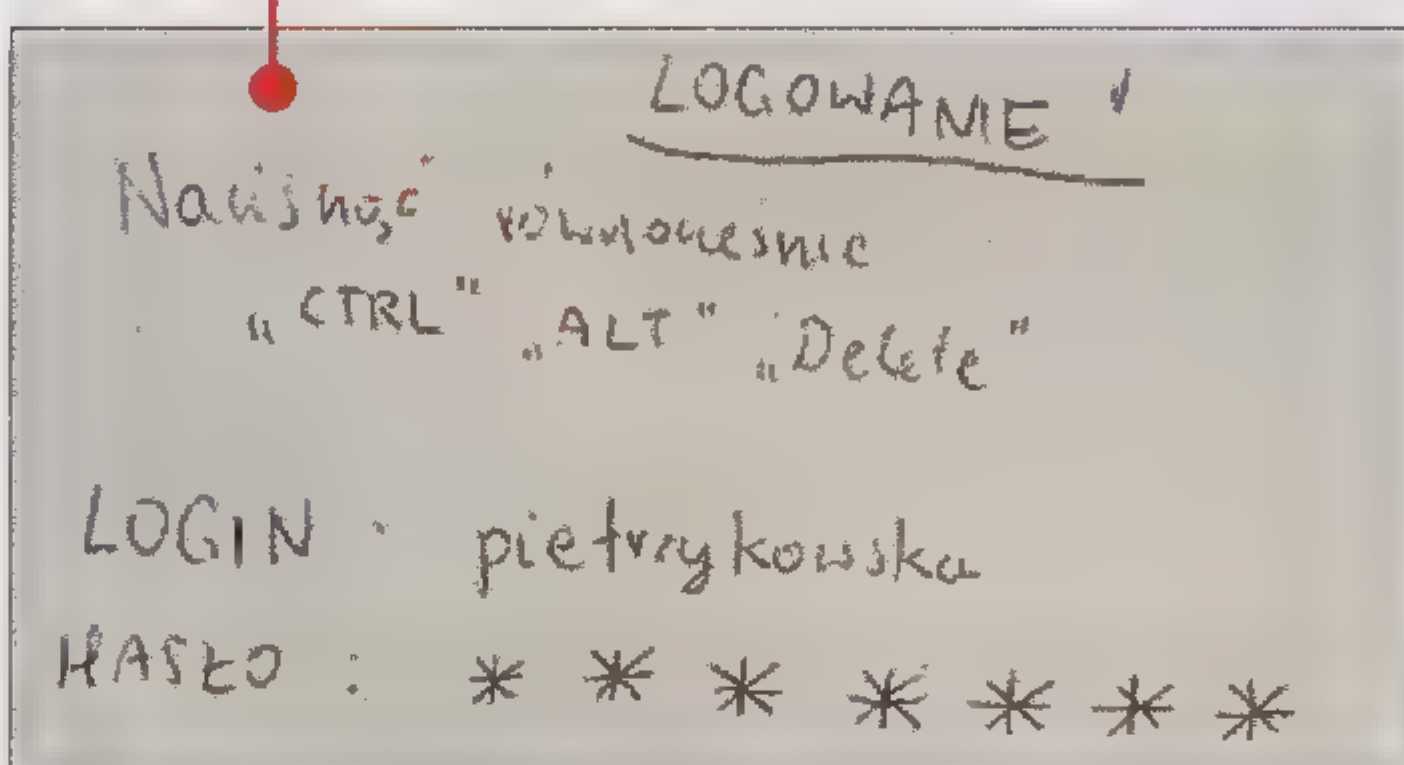 LOGOWANIE
Nacisnąć równocesnie
„CTRL" „ALT" „Delete"
LOGIN : pietrzykowska
HASŁO : * * * * * * *